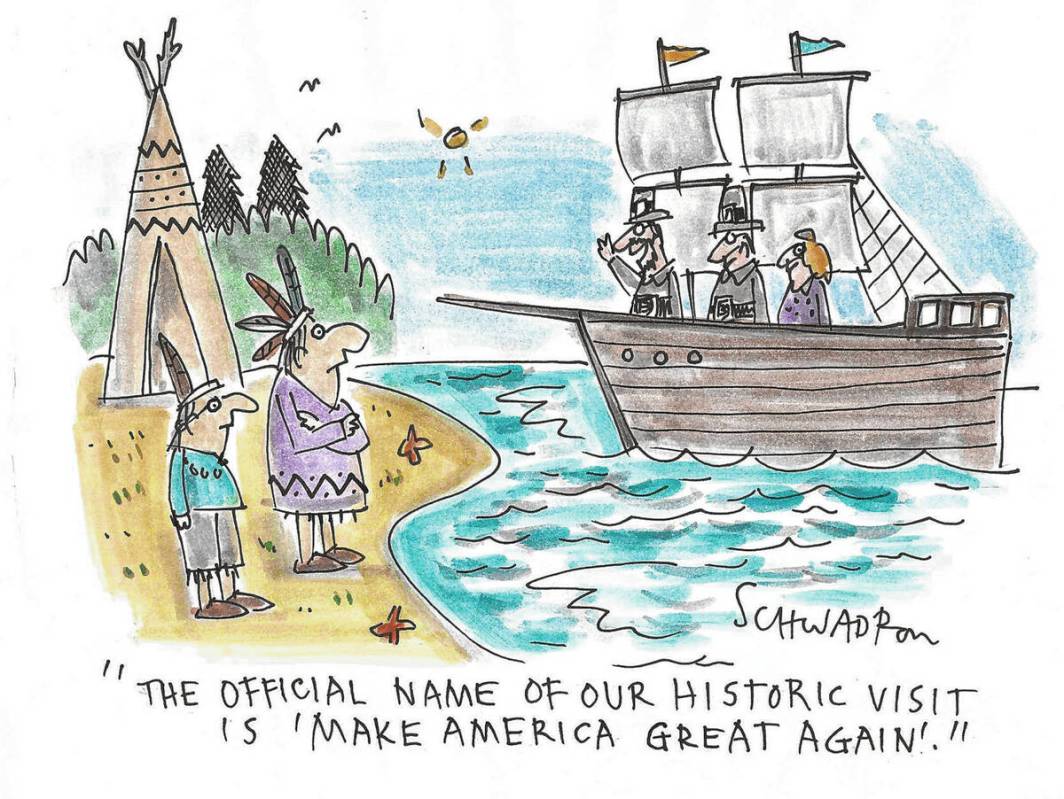 SCHWADRon
"THE OFFICIAL NAME OF OUR HISTORIC VISIT
IS 'MAKE AMERICA GREAT AGAIN'."